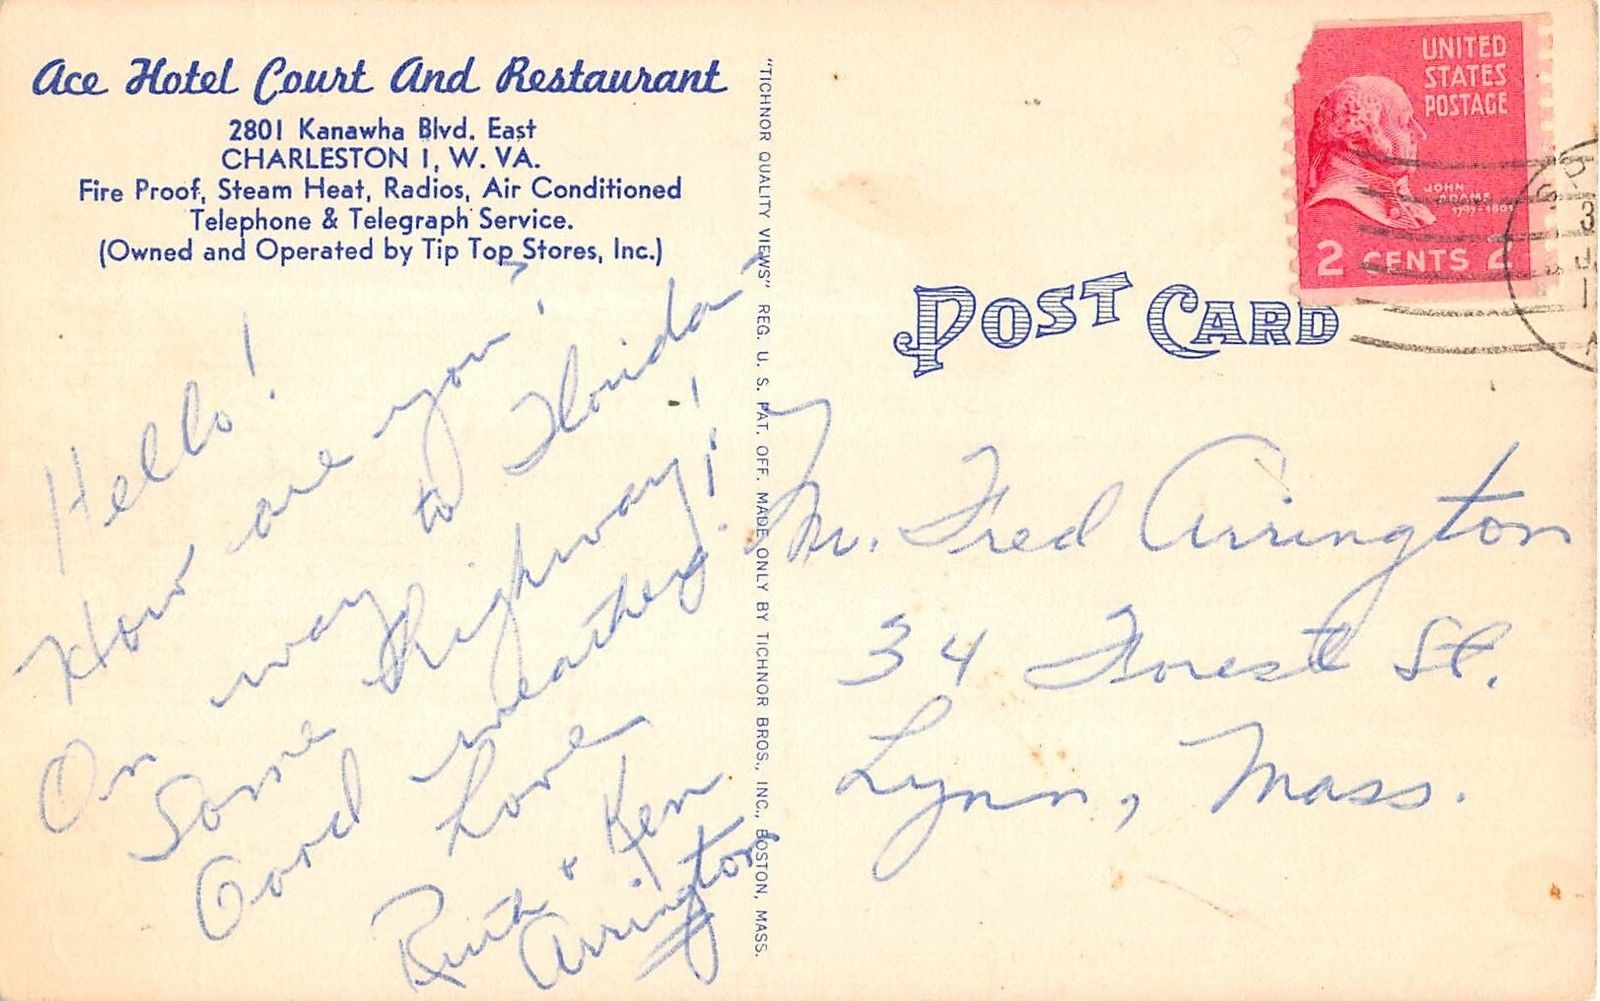 Ace Hotel Court And Restaurant
2801 Kanawha Blvd. East
CHARLESTON 1, W. VA.
Fire Proof, Steam Heat, Radios, Air Conditioned
Telephone & Telegraph Service.
(Owned and Operated by Tip Top Stores, Inc.)
Hello!
How are you?
On way to Florida
Some highway!
Good weather.
Love
Ruth & Ken
Arrington
"TICHNOR QUALITY VIEWS" REG. U. S. PAT. OFF. MADE ONLY BY TICHNOR BROS., INC., BOSTON, MASS.
UNITED
STATES
POSTAGE
JOHN
ADAMS
1797-1801
2 CENTS 2
POST CARD
Mr. Fred Arrington
34 Forest St.
Lynn, Mass.